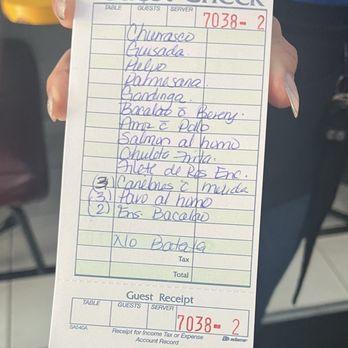 CHECK
TABLE GUESTS SERVER
7038- 2
Churrasco
Guisada
Pulpo
Parmesana
Gandinga
Bacalao c̄ Beren.
Arroz c̄ Pollo
Salmon al humo
Chuleta Frita
Filete de Res Enc.
(3) Canelones c̄ molida
(3) Pavo al humo
(2) Ens. Bacalao
No Batata
Tax
Total
Guest Receipt
TABLE GUESTS SERVER
7038- 2
Receipt for Income Tax or Expense
Account Record
adams